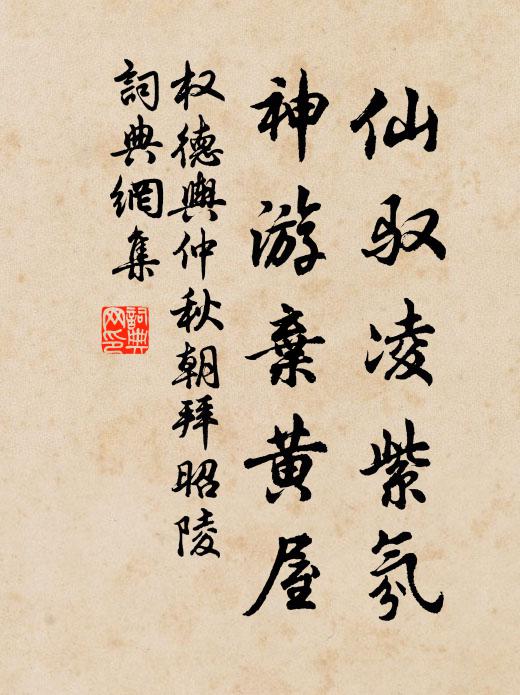 仙驭凌紫氛
神游棄黄屋
权德輿仲秋朝拜昭陵
詞典網集
詞典网印